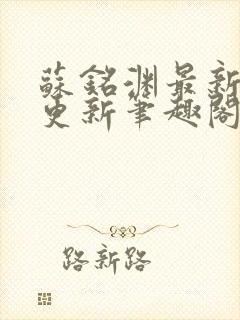 蘇銘渊最新
更新筆趣閣
路新路